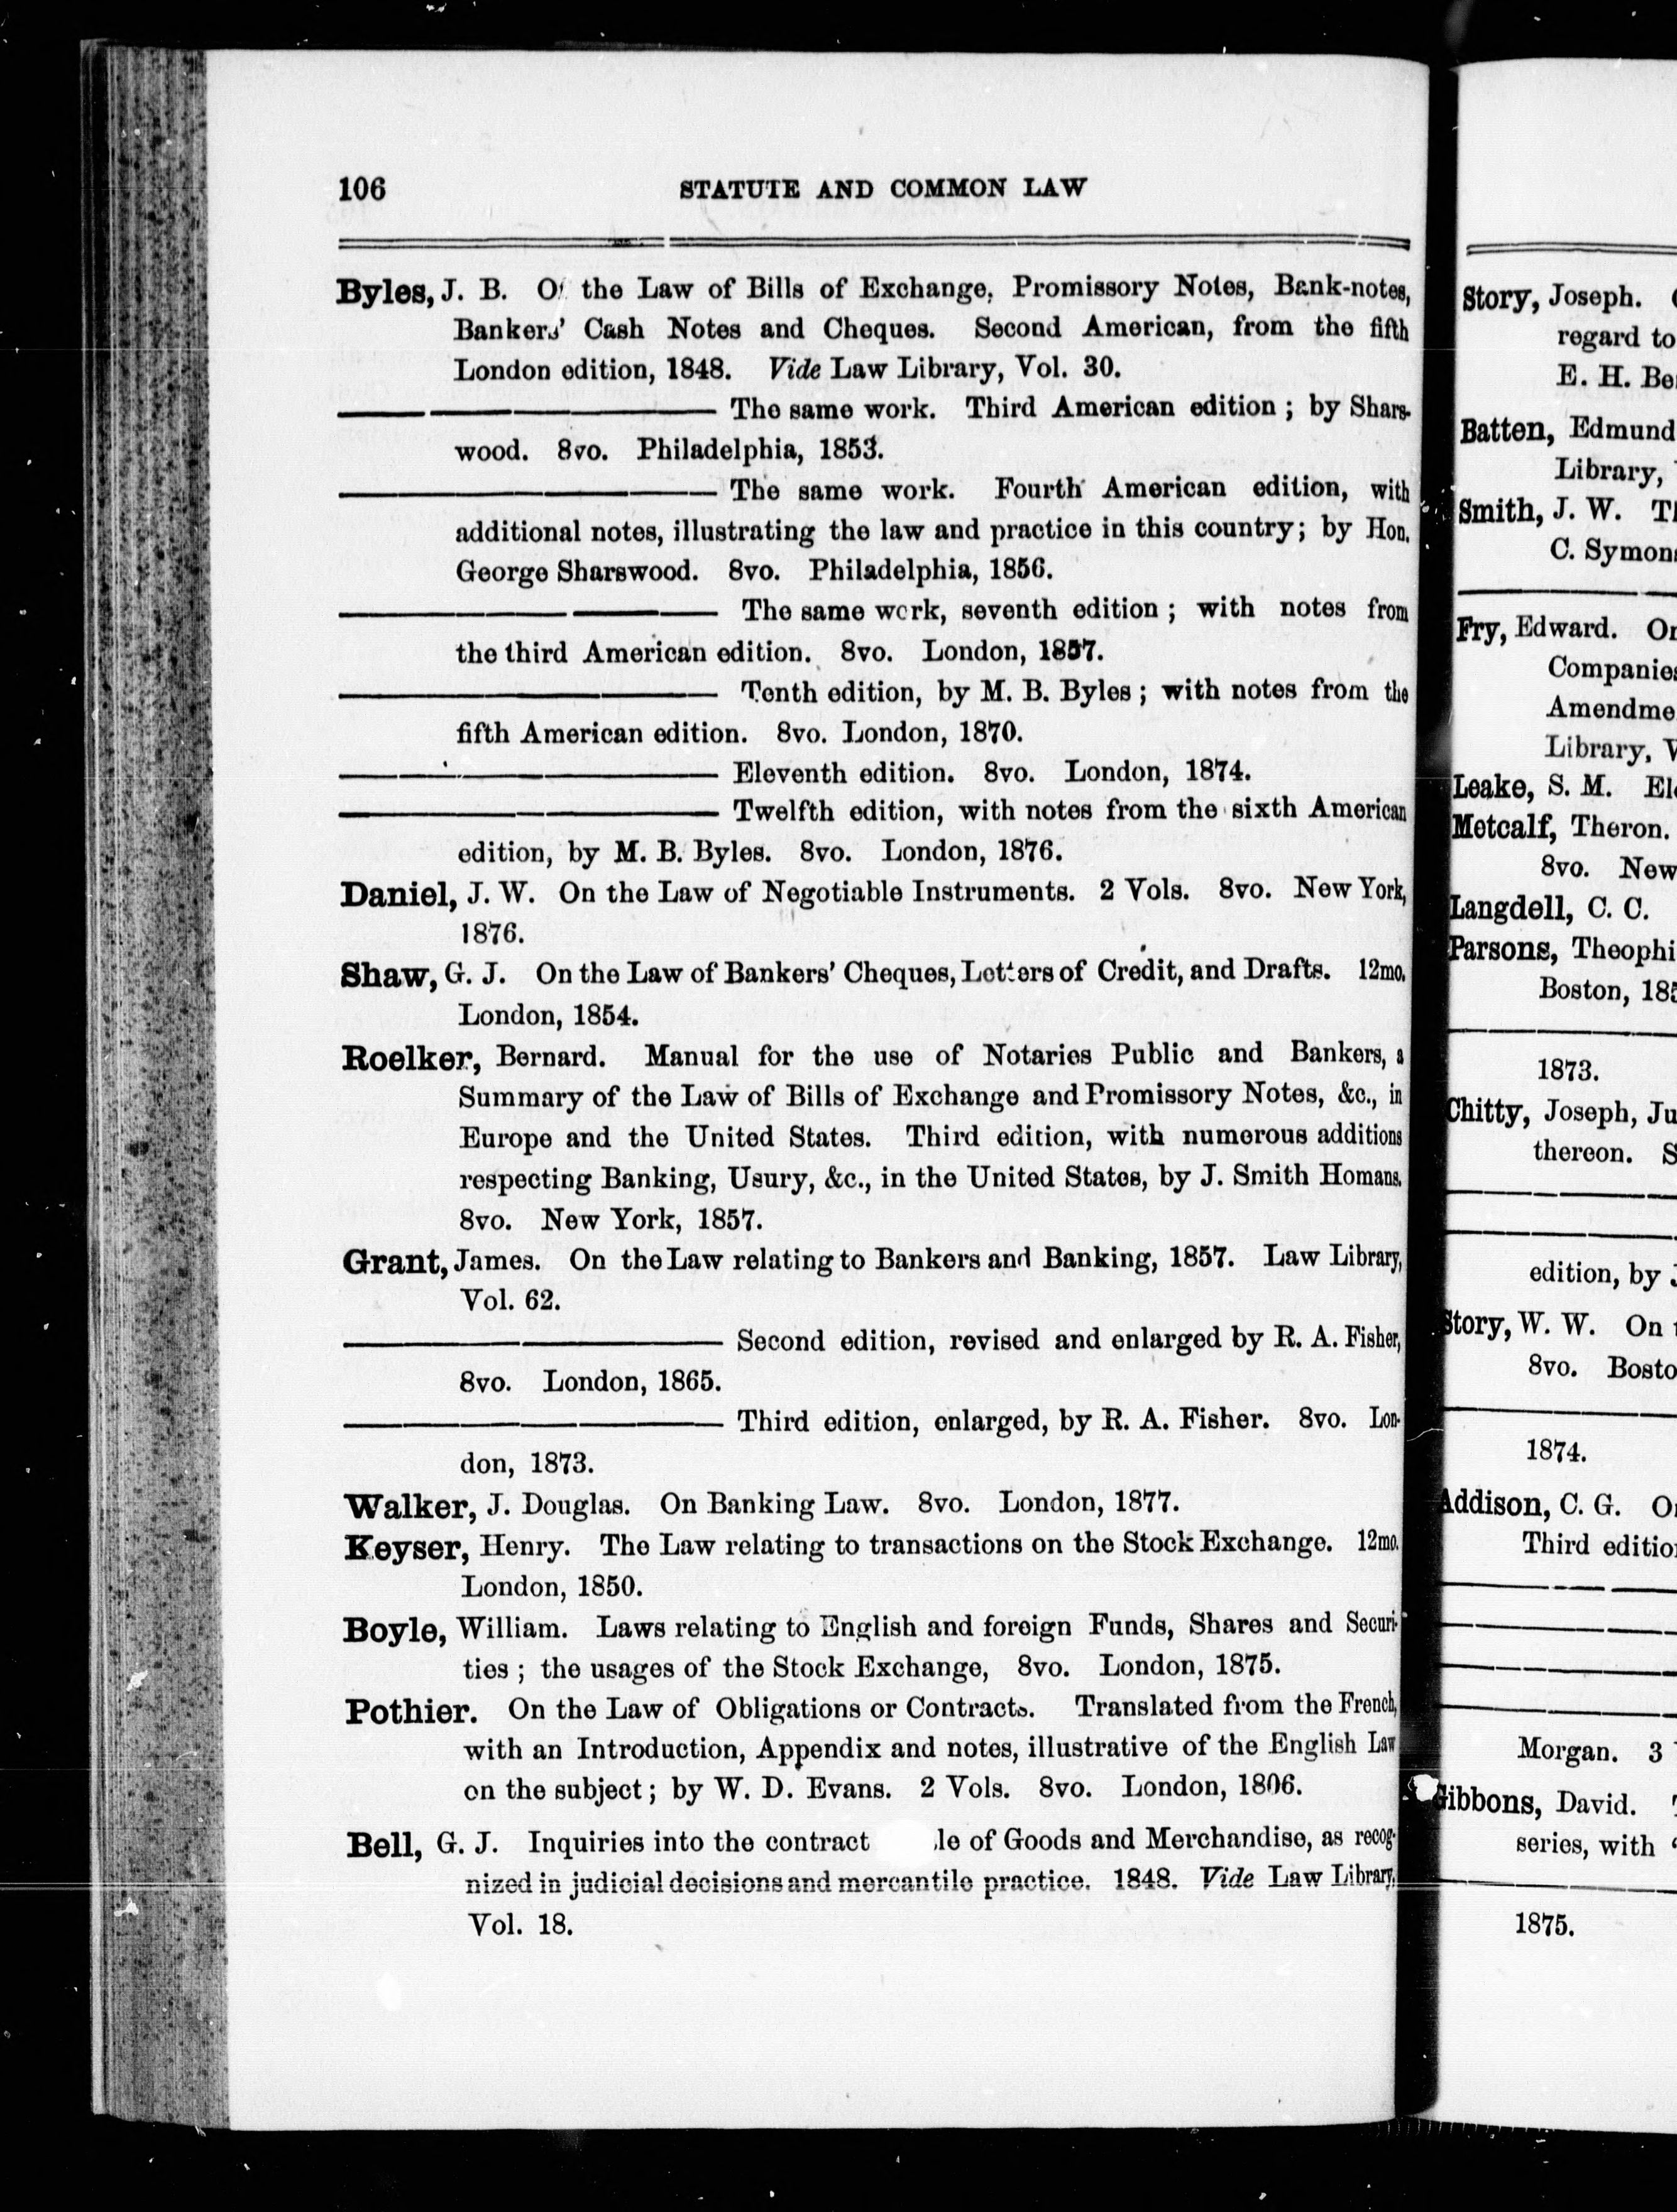 106 STATUTE AND COMMON LAW
Byles, J. B. Of the Law of Bills of Exchange, Promissory Notes, Bank-notes,
Bankers' Cash Notes and Cheques. Second American, from the fifth
London edition, 1848. Vide Law Library, Vol. 30.
——— The same work. Third American edition; by Shars-
wood. 8vo. Philadelphia, 1853.
——— The same work. Fourth American edition, with
additional notes, illustrating the law and practice in this country; by Hon.
George Sharswood. 8vo. Philadelphia, 1856.
——— The same work, seventh edition; with notes from
the third American edition. 8vo. London, 1857.
——— Tenth edition, by M. B. Byles; with notes from the
fifth American edition. 8vo. London, 1870.
——— Eleventh edition. 8vo. London, 1874.
——— Twelfth edition, with notes from the sixth American
edition, by M. B. Byles. 8vo. London, 1876.
Daniel, J. W. On the Law of Negotiable Instruments. 2 Vols. 8vo. New York,
1876.
Shaw, G. J. On the Law of Bankers' Cheques, Letters of Credit, and Drafts. 12mo.
London, 1854.
Roelker, Bernard. Manual for the use of Notaries Public and Bankers, a
Summary of the Law of Bills of Exchange and Promissory Notes, &c., in
Europe and the United States. Third edition, with numerous additions
respecting Banking, Usury, &c., in the United States, by J. Smith Homans.
8vo. New York, 1857.
Grant, James. On the Law relating to Bankers and Banking, 1857. Law Library,
Vol. 62.
——— Second edition, revised and enlarged by R. A. Fisher,
8vo. London, 1865.
——— Third edition, enlarged, by R. A. Fisher. 8vo. Lon-
don, 1873.
Walker, J. Douglas. On Banking Law. 8vo. London, 1877.
Keyser, Henry. The Law relating to transactions on the Stock Exchange. 12mo.
London, 1850.
Boyle, William. Laws relating to English and foreign Funds, Shares and Securi-
ties; the usages of the Stock Exchange, 8vo. London, 1875.
Pothier. On the Law of Obligations or Contracts. Translated from the French,
with an Introduction, Appendix and notes, illustrative of the English Law
on the subject; by W. D. Evans. 2 Vols. 8vo. London, 1806.
Bell, G. J. Inquiries into the contract le of Goods and Merchandise, as recog-
nized in judicial decisions and mercantile practice. 1848. Vide Law Library,
Vol. 18.
Story, Joseph.
regard to
E. H. Be
Batten, Edmund
Library,
Smith, J. W. Th
C. Symons
Fry, Edward. On
Companies
Amendme
Library, V
Leake, S. M. Ele
Metcalf, Theron.
8vo. New
Langdell, C. C.
Parsons, Theophi
Boston, 185
1873.
Chitty, Joseph, Ju
thereon. S
edition, by J
Story, W. W. On
8vo. Bosto
1874.
Addison, C. G. O
Third edition
Morgan. 3
Gibbons, David.
series, with
1875.